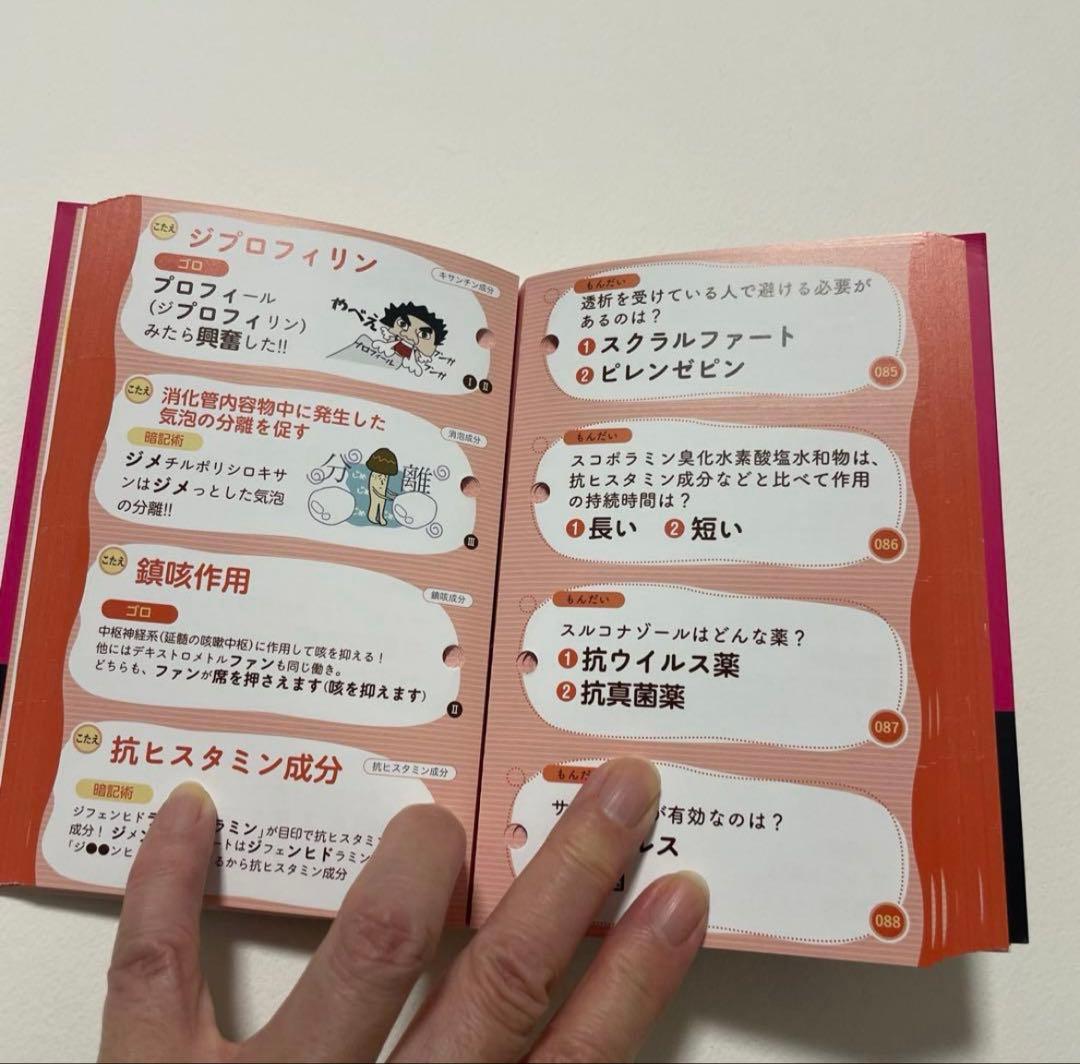 こたえ
ジプロフィリン
ゴロ
キサンチン成分
プロフィール
(ジプロフィリン)
みたら興奮した!!
やべえ
プロフィール
I II
こたえ
消化管内容物中に発生した
気泡の分離を促す
暗記術
消泡成分
ジメチルポリシロキサ
ンはジメっとした気泡
の分離!!
分離
III
こたえ
鎮咳作用
ゴロ
鎮咳成分
中枢神経系(延髄の咳嗽中枢)に作用して咳を抑える!
他にはデキストロメトルファンも同じ働き。
どちらも、ファンが席を押さえます(咳を抑えます)
II
こたえ
抗ヒスタミン成分
抗ヒスタミン成分
暗記術
ジフェンヒド
ラミン」が目印で抗ヒスタミン
成分! ジメン
ートはジフェンヒドラミン
「ジ●●ンヒ
るから抗ヒスタミン成分
もんだい
透析を受けている人で避ける必要が
あるのは?
1 スクラルファート
2 ピレンゼピン
085
もんだい
スコポラミン臭化水素酸塩水和物は、
抗ヒスタミン成分などと比べて作用
の持続時間は?
1 長い 2 短い
086
もんだい
スルコナゾールはどんな薬?
1 抗ウイルス薬
2 抗真菌薬
087
もんだ
サ
が有効なのは?
ルス
088